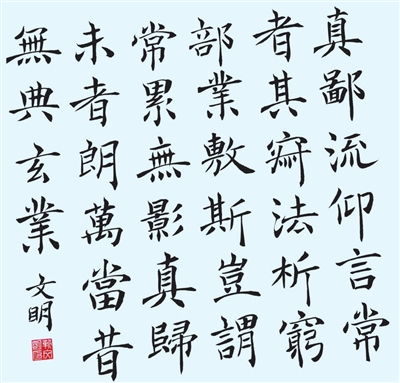 真鄙流仰言常
者其法析窮
部業敷斯豈謂
常累無影真歸
未者朗萬當昔
無典玄業
文明